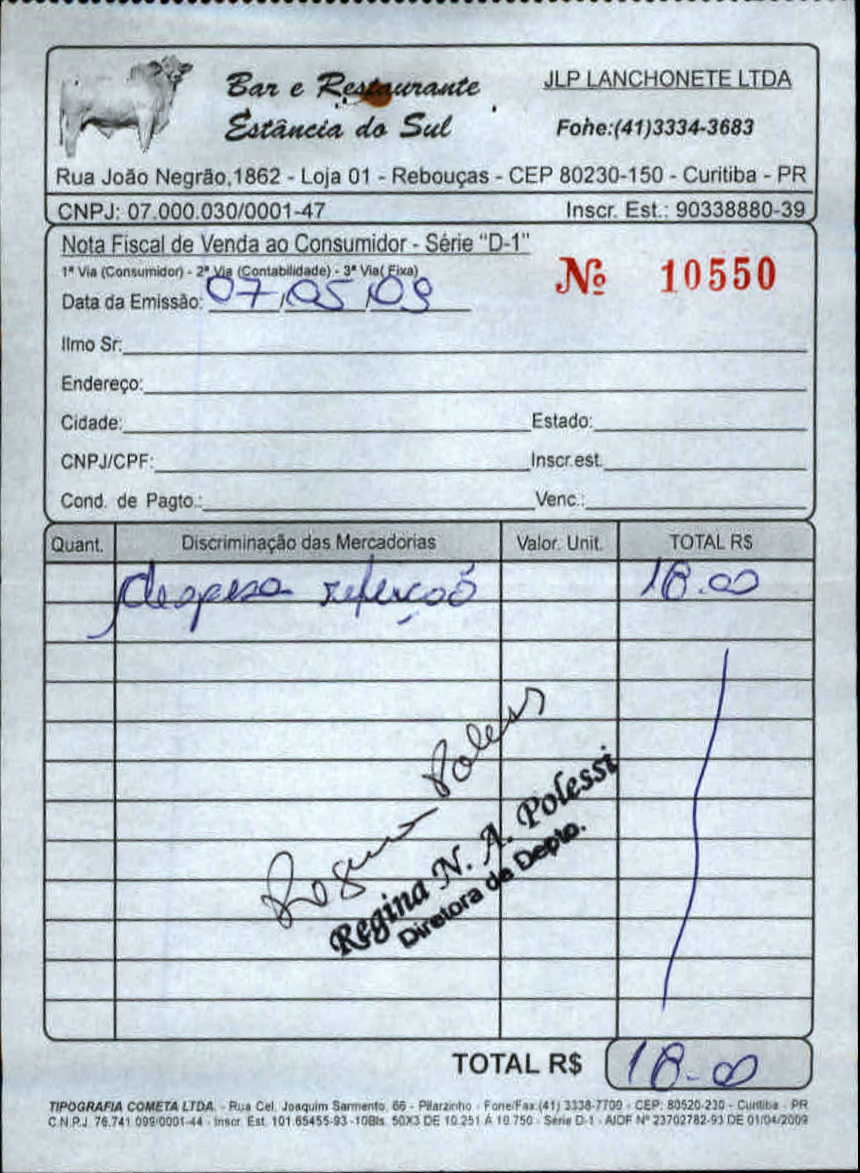 Bar e Restaurante
Estância do Sul
JLP LANCHONETE LTDA
Fohe:(41)3334-3683
Rua João Negrão,1862 - Loja 01 - Rebouças - CEP 80230-150 - Curitiba - PR
CNPJ: 07.000.030/0001-47 Inscr. Est.: 90338880-39
Nota Fiscal de Venda ao Consumidor - Série "D-1"
1ª Via (Consumidor) - 2ª Via (Contabilidade) - 3ª Via( Fixa)
Nº 10550
Data da Emissão: 07/05/09
Ilmo Sr:
Endereço:
Cidade: Estado:
CNPJ/CPF: Inscr.est.
Cond. de Pagto.: Venc.:
Quant. Discriminação das Mercadorias Valor. Unit. TOTAL R$
despesa refeição 18.00
Regina Polessi
Regina N. A. Polessi
Diretora de Depto.
TOTAL R$ 18.00
TIPOGRAFIA COMETA LTDA. - Rua Cel. Joaquim Sarmento, 66 - Pilarzinho - Fone/Fax:(41) 3338-7700 - CEP: 80520-230 - Curitiba - PR
C.N.P.J. 76.741.099/0001-44 - Inscr. Est. 101.65455-93 -10Bls. 50X3 DE 10.251 Á 10.750 - Série D-1 - AIDF Nº 23702782-93 DE 01/04/2009